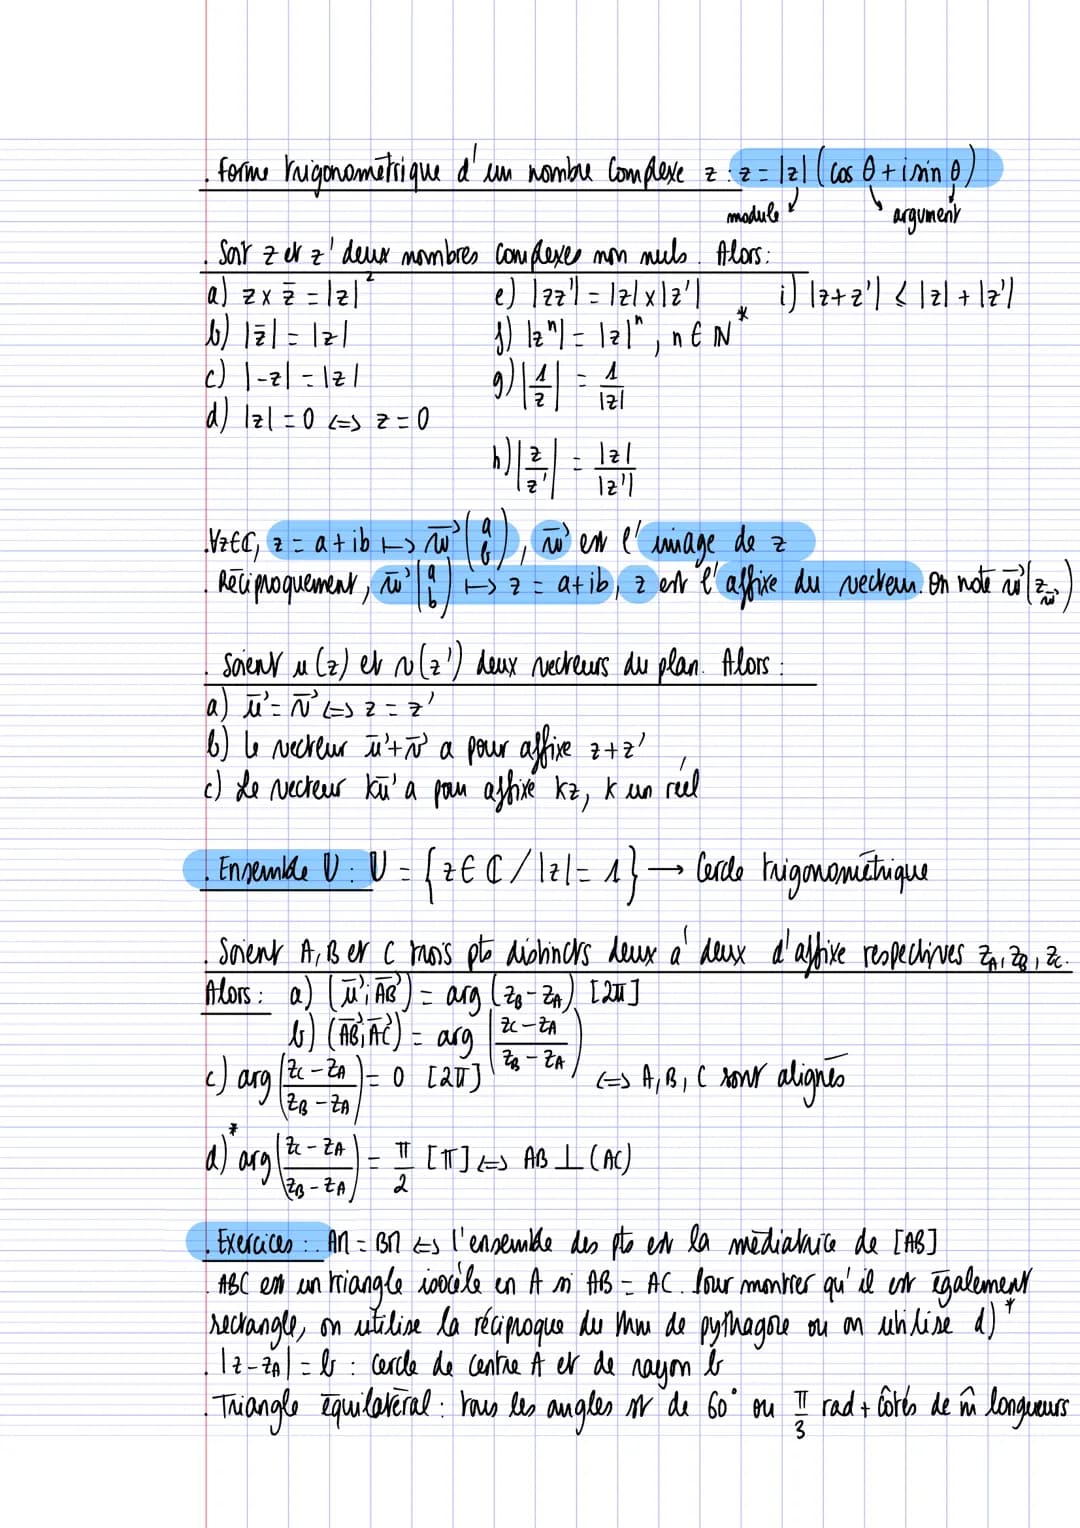 . Forme trigonométrique d'un nombre complexe z : z = |z| (cos θ + i sin θ)
module argument
. Soit z et z' deux nombres complexes non nuls. Alors :
a) z × z̄ = |z|² e) |zz'| = |z| × |z'| i) |z+z'| ≤ |z| + |z'|
b) |z̄| = |z| f) |zⁿ| = |z|ⁿ, n ∈ ℕ*
c) |-z| = |z| g) |1/z| = 1/|z|
d) |z| = 0 <=> z = 0
h) |z/z'| = |z|/|z'|
. ∀z∈ℂ, z = a + ib ↦ w⃗ (a b), w⃗ est l'image de z
. Réciproquement, w⃗ (a b) ↦ z = a+ib, z est l'affixe du vecteur. On note w⃗ (z_w⃗)
. Soient u (z) et v (z') deux vecteurs du plan. Alors :
a) u⃗ = v⃗ <=> z = z'
b) Le vecteur u⃗ + v⃗ a pour affixe z+z'
c) Le vecteur ku⃗ a pour affixe kz, k un réel
. Ensemble U : U = {z ∈ ℂ / |z| = 1} → Cercle trigonométrique
. Soient A, B et C trois pts distincts deux à deux d'affixe respectives zA, zB, zC.
Alors : a) (u⃗ ; AB⃗) = arg (zB - zA) [2π]
b) (AB⃗ ; AC⃗) = arg ((zC - zA)/(zB - zA))
c) arg ((zC - zA)/(zB - zA)) = 0 [2π] <=> A, B, C sont alignés
d)* arg ((zC - zA)/(zB - zA)) = π/2 [π] <=> AB ⊥ (AC)
. Exercices : . AM = BM <=> l'ensemble des pts est la médiatrice de [AB]
. ABC est un triangle isocèle en A si AB = AC. Pour montrer qu'il est également
rectangle, on utilise la réciproque du thm de pythagore ou on utilise d)*
. |z - zA| = b : Cercle de centre A et de rayon b
. Triangle équilatéral : tous les angles st de 60° ou π/3 rad + côtés de m̂ longueurs